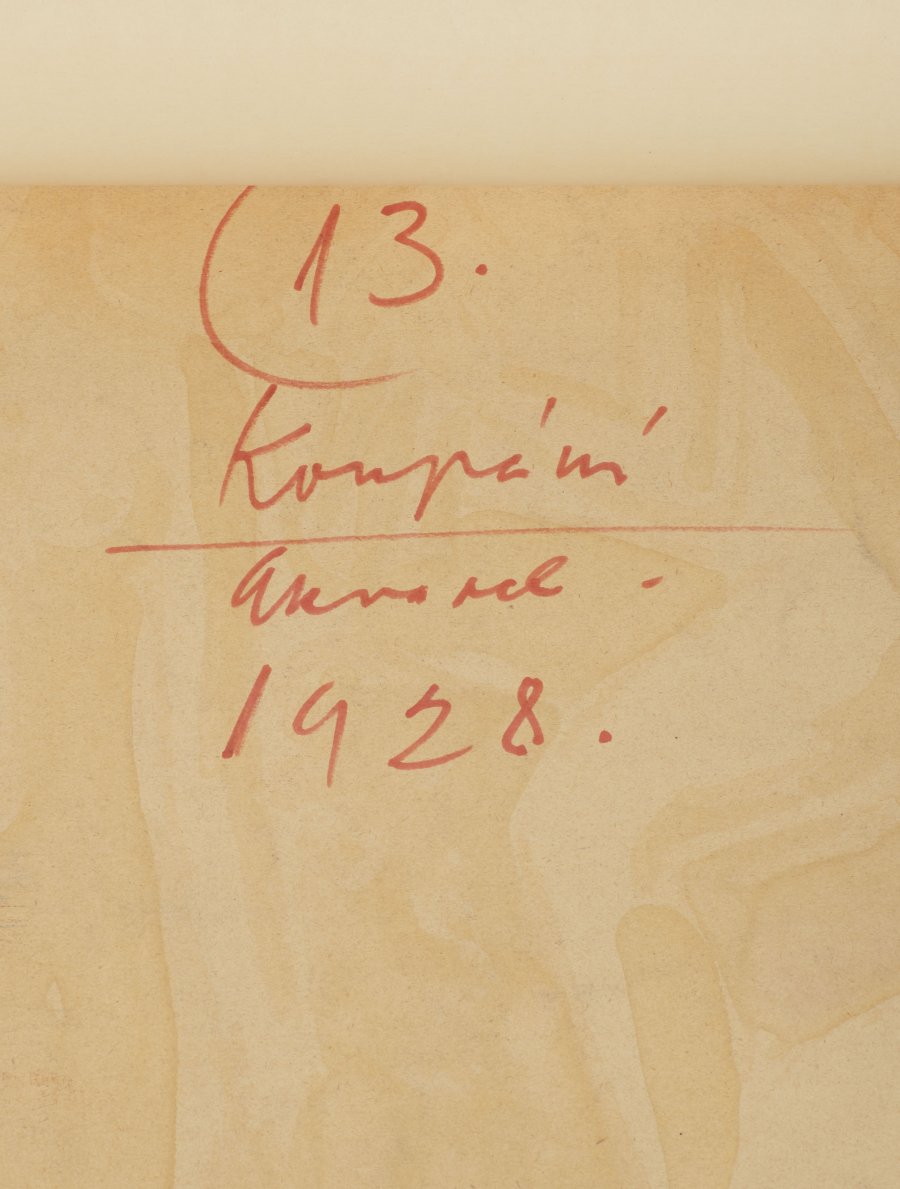 13.
Koupání
Akvarel -
1928.